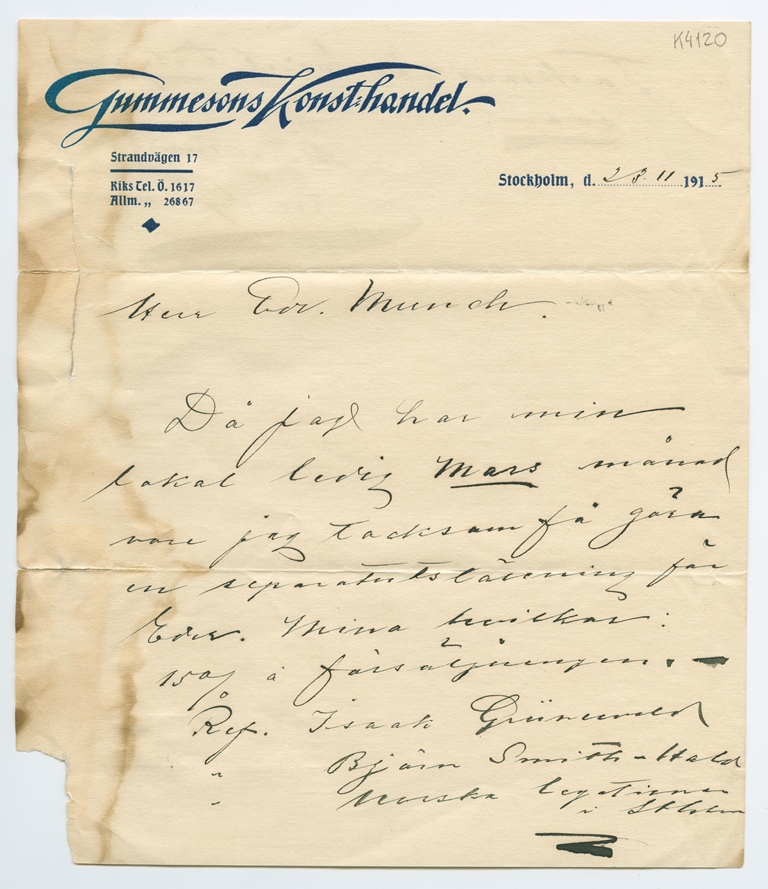 K4120
Gummesons Konst-handel.
Strandvägen 17
Riks Tel. Ö. 1617
Allm. „ 26867
Stockholm, d. 23. 11 1915
Herr Edv. Munch.
Då jag har min
lokal ledig Mars månad
vore jag tacksam få göra
en separatutställning för
Eder. Mina hvilkor:
15% å försäljningen. —
Ref. Isaak Grünewald
" Björn Smith-Hald
" Norska legationen
i Sthlm